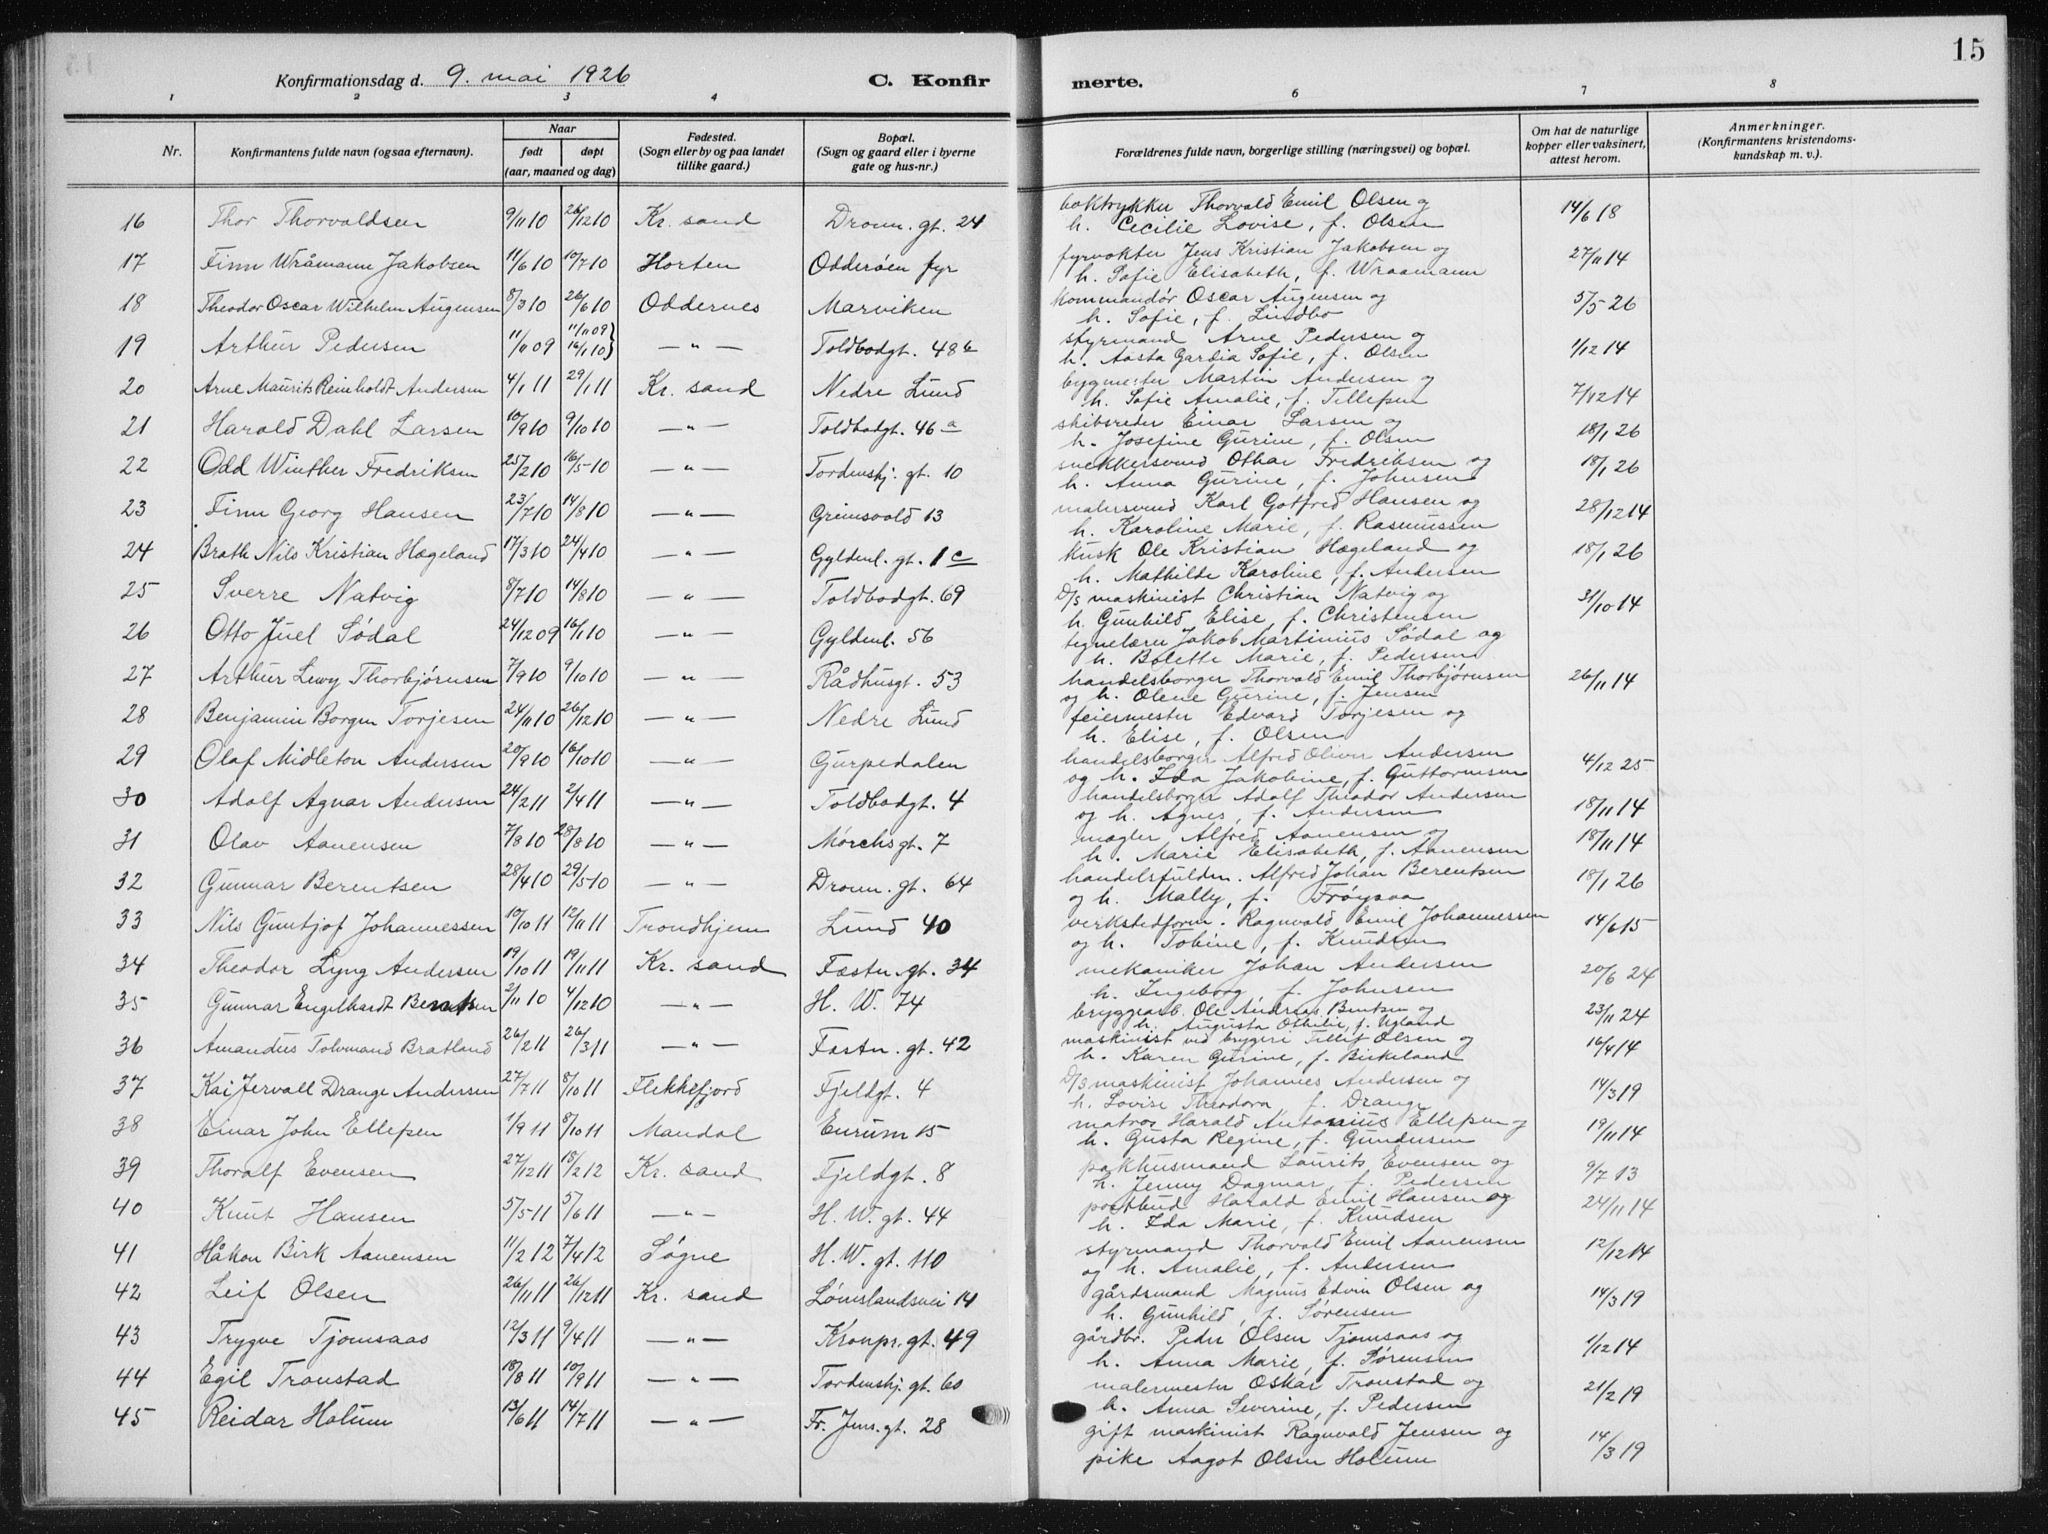 15
Konfirmationsdag d. 9. mai 1926
C. Konfirmerte.
1 2 3 4 6 7 8
Nr.
Konfirmantens fulde navn (ogsaa efternavn).
Naar
født døpt
(aar, maaned og dag)
Fødested.
(Sogn eller by og paa landet
tillike gaard.)
Bopæl.
(Sogn og gaard eller i byerne
gate og hus-nr.)
Forældrenes fulde navn, borgerlige stilling (næringsvei) og bopæl.
Om hat de naturlige
kopper eller vaksinert,
attest herom.
Anmerkninger.
(Konfirmantens kristendoms-
kundskap m. v.).
16 Thor Thorvaldsen 9/11 10 26/12 10 Kr. sand Dronn. gt. 24 boktrykker Thorvald Emil Olsen og
h. Cecilie Lovise, f. Olsen 14/6 18
17 Finn Wråmann Jakobsen 11/6 10 10/7 10 Horten Odderøen fyr fyrvokter Jens Kristian Jakobsen og
h. Sofie Elisabeth, f. Wraamann 27/11 14
18 Theodor Oscar Wilhelm Augensen 8/3 10 26/6 10 Oddernes Marviken kommandør Oscar Augensen og
h. Sofie, f. Lindbo 5/5 26
19 Arthur Pedersen 11/11 09 11/11 09 16/1 10 } — " — Toldbodgt. 48 b styrmand Arne Pedersen og
h. Aasta Gardia Sofie, f. Olsen 1/12 14
20 Arne Maurits Reinholdt Andersen 4/1 11 29/1 11 Kr. sand Nedre Lund bygmester Martin Andersen og
h. Sofie Amalie, f. Tellefsen 7/12 14
21 Harald Dahl Larsen 10/9 10 9/10 10 — " — Toldbodgt. 46 a skibsreder Einar Larsen og
h. Josefine Gurine, f. Olsen 18/1 26
22 Odd Winther Fredriksen 25/2 10 16/5 10 — " — Tordenskj. gt. 10 snekkersvend Othar Fredriksen og
h. Anna Gurine, f. Johnsen 18/1 26
23 Finn Georg Hansen 23/7 10 14/8 10 — " — Grimsvold 13 malersvend Karl Gotfred Hansen og
h. Karoline Marie, f. Rasmussen 28/12 14
24 Brath Nils Kristian Hægeland 17/3 10 24/4 10 — " — Gyldenl. gt. 1 c kusk Ole Kristian Hægeland og
h. Mathilde Karoline, f. Andersen 18/1 26
25 Sverre Natvig 8/7 10 14/8 10 — " — Toldbodgt. 69 D/S maskinist Christian Natvig og
h. Gunhild Elise, f. Christensen 31/10 14
26 Otto Juel Sødal 24/12 09 16/1 10 — " — Gyldenl. 56 tegnelærer Jakob Martinius Sødal og
h. Bolette Marie, f. Pedersen
27 Arthur Lewy Thorbjørnsen 7/9 10 9/10 10 — " — Rådhusgt. 53 handelsborger Thorvald Emil Thorbjørnsen
og h. Olene Gurine, f. Jensen 26/11 14
28 Benjamin Borgen Torjesen 24/11 10 26/12 10 — " — Nedre Lund feiermester Edvard Torjesen og
h. Elise, f. Olsen
29 Olaf Midleton Andersen 20/9 10 16/10 10 — " — Gurpedalen handelsborger Alfred Oliver Andersen
og h. Ida Jakobine, f. Guttormsen 4/12 25
30 Adolf Agnar Andersen 24/2 11 2/4 11 — " — Toldbodgt. 4 handelsborger Adolf Theodor Andersen
og h. Agnes, f. Andersen 18/11 14
31 Olav Aanensen 7/8 10 28/8 10 — " — Mørchs gt. 7 mægler Alfred Aanensen og
h. Marie Elisabeth, f. Aanensen 18/11 14
32 Gunnar Berentsen 28/4 10 29/5 10 — " — Dronn. gt. 64 handelsfuldm. Alfred Johan Berentsen
og h. Mally, f. Frøysaa 18/1 26
33 Nils Guntjof Johannessen 10/10 11 12/11 11 Trondhjem Lund 40 verkstedform. Ragnvald Emil Johannessen
og h. Tobine, f. Knudsen 14/6 15
34 Theodor Lyng Andersen 19/10 11 19/11 11 Kr. sand Fæstn. gt. 34 mekaniker Johan Andersen
h. Ingeborg f. Johnsen 20/6 24
35 Gunnar Engelhardt Bentsen 2/11 10 4/12 10 — " — H. W. 74 bryggearb. Ole Andreas Bentsen og
h. Augusta Othilie, f. Ugland 23/11 24
36 Amandus Tolvmand Bratland 26/2 11 26/3 11 — " — Fæstn. gt. 42 maskinist ved brygeri Tellef Olsen og
h. Karen Gurine, f. Birkeland 16/4 14
37 Kai Jervall Drange Andersen 27/7 11 8/10 11 Flekkefjord Fjeldgt. 4 D/S maskinist Johannes Andersen og
h. Lovise Theodora f. Drange 14/3 19
38 Einar John Ellefsen 1/9 11 8/10 11 Mandal Enrum 15 matros Harald Antonius Ellefsen og
h. Gusta Regine, f. Gundersen 19/11 14
39 Thoralf Evensen 27/12 11 18/2 12 Kr. sand Fjeldgt. 8 pakhusmand Laurits Evensen og
h. Jenny Dagmar, f. Pedersen 9/7 13
40 Knut Hansen 5/5 11 5/6 11 — " — H. W. gt. 44 postbud Harald Emil Hansen og
h. Ida Marie, f. Knudsen 24/11 14
41 Håkon Birk Aanensen 11/2 12 7/4 12 Søgne H. W. gt. 110 styrmand Thorvald Emil Aanensen
og h. Amalie, f. Andersen 12/12 14
42 Leif Olsen 26/11 11 26/12 11 Kr. sand Lømslandsvei 14 gårdsmand Magnus Edvin Olsen og
h. Gunhild, f. Sørensen 14/3 19
43 Trygve Tjomsaas 12/3 11 9/4 11 — " — Kronpr. gt. 49 gårdbr. Peder Olsen Tjomsaas og
h. Anna Marie, f. Sørensen 1/12 14
44 Egil Tronstad 18/8 11 10/9 11 — " — Tordenskj. gt. 60 malermester Oskar Tronstad og
h. Anna Severine, f. Pedersen 21/2 19
45 Reidar Holum 13/6 11 14/7 11 — " — Fr. Jens. gt. 28 gift maskinist Ragnvald Jensen og
pike Aagot Olsen Holum 14/3 19